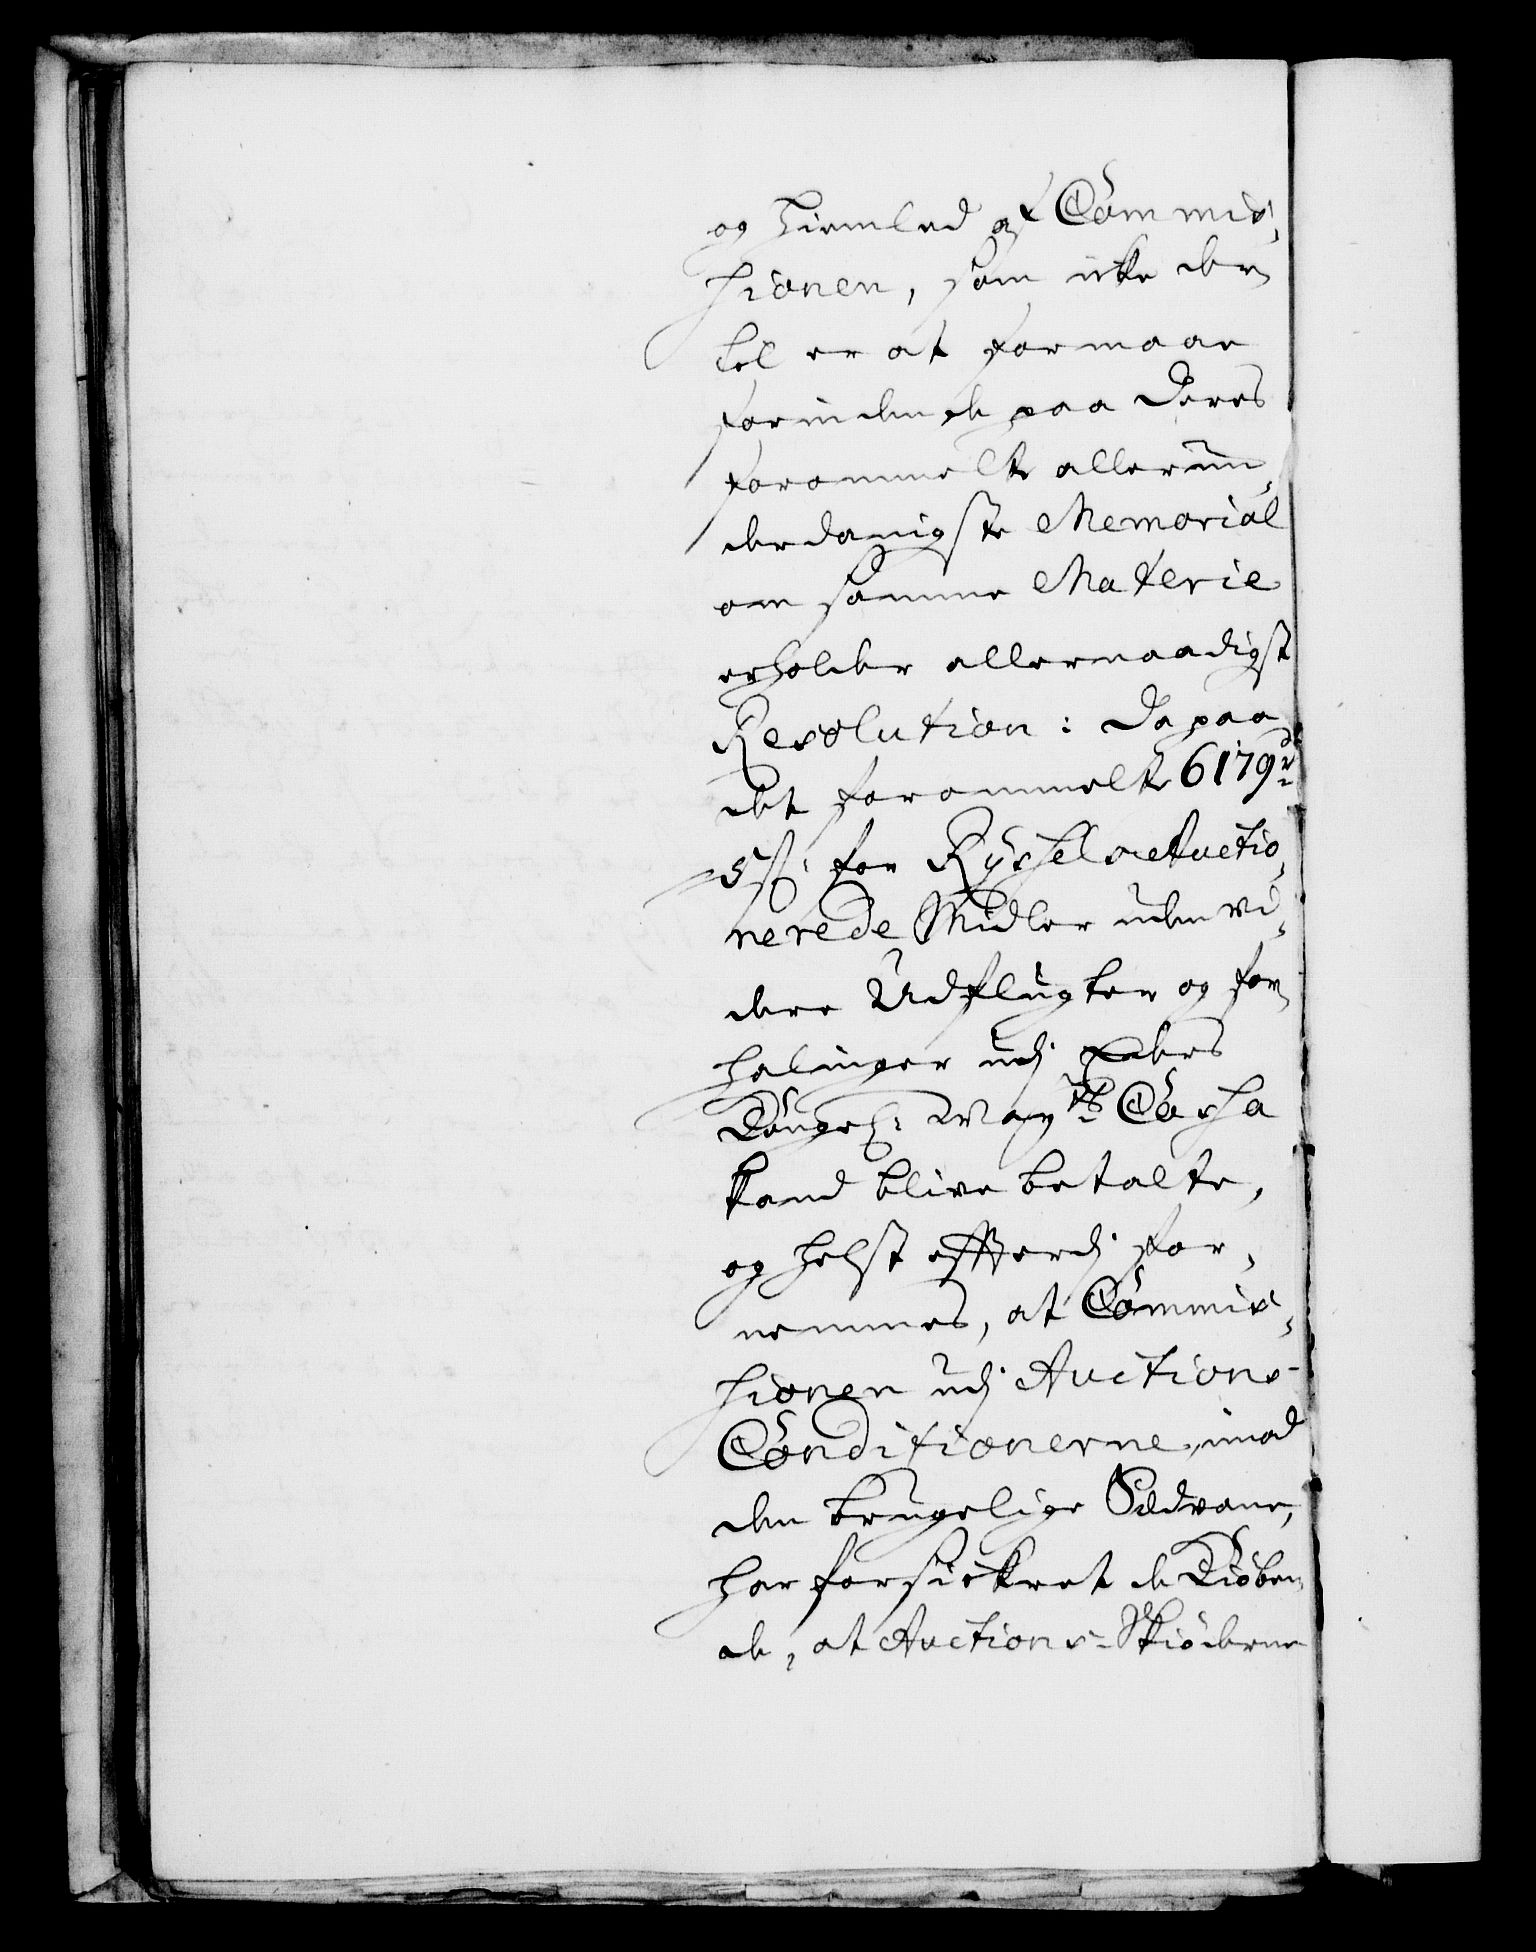 og hiemled af Commis-
sionen, som icke der
til er at formaae
forinden de paa Deres
forommelte allerun-
derdanigste Memorial
om samme Materie
erholder allernaadigst
Resolution: Da paa
det forommelte 6179 rdr
5 ß: for Ryssels Auctio-
nerede Midler uden vi-
dere Udflugter og for
halinger udj Eders
Kongel: May:ts Cassa
kand blive betalte,
og helst efftterdj for-
nemmes, at Commis-
sionen udj Auctions-
Conditionerne, imod
den brugelige Sædvane,
har forsickret de Kiøben
de, at Auctions-Skiøderne